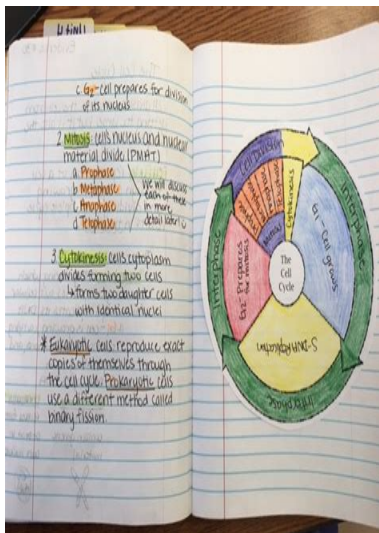 Unit 4
c. G₂-cell prepares for division
of its nucleus
2. Mitosis: cells nucleus and nuclear
material divide (PMAT)
a. Prophase
b. Metaphase
c. Anaphase
d. Telophase
We will discuss
each of these
in more
detail later!
3. Cytokinesis: cells cytoplasm
divides forming two cells
↳ forms two daughter cells
with identical nuclei
* Eukaryotic cells reproduce exact
copies of themselves through
the cell cycle. Prokaryotic cells
use a different method called
binary fission.
Cell Division
Cytokinesis
Mitosis
Interphase
G1- Cell grows
The
Cell
Cycle
Interphase
G2- Prepares
for mitosis
S-DNA Replication
Interphase